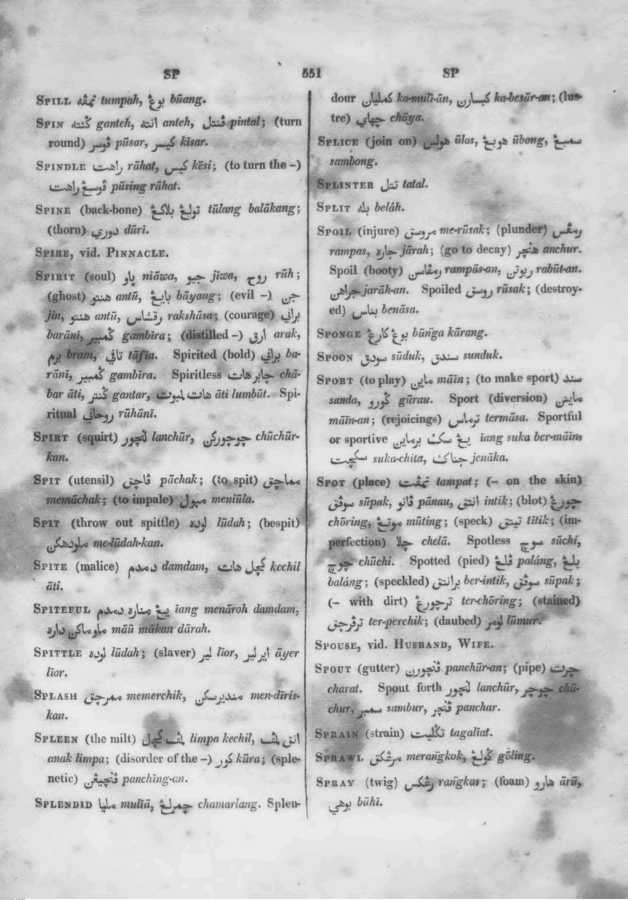 SP 551 SP
SPILL تمڤه tumpah, بوڠ būang.
SPIN گنته ganteh, انته anteh, ڤنتل pintal; (turn
round) ڤوسر pūsar, كيسر kīsar.
SPINDLE راهت rāhat, كيسي kīsi; (to turn the –)
ڤوسڠ راهت pūsing rāhat.
SPINE (back-bone) تولڠ بلاكڠ tūlang balākang;
(thorn) دوري dūri.
SPIRE, vid. PINNACLE.
SPIRIT (soul) ڽاو niāwa, جيو jīwa, روح rūh;
(ghost) هنتو antū, بايڠ bāyang; (evil –) جن
jin, هنتو antū, رقشاس rakshāsa; (courage) براني
barāni, گمبير gambīra; (distilled –) ارق arak,
برم bram, تافي tāfia. Spirited (bold) براني ba-
rāni, گمبير gambīra. Spiritless چابر هات chā-
bar āti, گنتر gantar, هات لمبوت āti lumbūt. Spi-
ritual روحاني rūhāni.
SPIRT (squirt) لنچور lanchūr, چورچوركن chūchūr-
kan.
SPIT (utensil) ڤاچق pāchak; (to spit) مماچق
memāchak; (to impale) meniūla.
SPIT (throw out spittle) لوده lūdah; (bespit)
ملودهكن me-lūdah-kan.
SPITE (malice) دمدم damdam, كچيل هات kechil
āti.
SPITEFUL يڠ مناره دمدم īang menāroh damdam,
ماو ماكن داره māū mākan dārah.
SPITTLE لوده lūdah; (slaver) لير līor, اير لير āyer
līor.
SPLASH ممرچق memerchik, منديرسكن men-dīris-
kan.
SPLEEN (the milt) لمڤ كچيل limpa kechil, انق لمڤ
anak limpa; (disorder of the –) كور kūra; (sple-
netic) ڤنچيڠن panching-an.
SPLENDID مليا muliā, چمرلڠ chamarlang. Splen-
dour كمليان ka-muliā-ān, كبسارن ka-besār-an; (lus-
tre) چهاي chāya.
SPLICE (join on) هولس ūlas, هوبڠ ūbong, سمبڠ
sambong.
SPLINTER تتل tatal.
SPLIT بله belāh.
SPOIL (injure) مروسق me-rūsak; (plunder) رمڤس
rampas, جاره jārah; (go to decay) هنچر anchur.
Spoil (booty) رمڤاسن rampās-an, ربوتن rabūt-an.
جراهن jarāh-an. Spoiled روسق rūsak; (destroy-
ed) بناس benāsa.
SPONGE بوڠ كارڠ būnga kārang.
SPOON سودق sūduk, سندق sunduk.
SPORT (to play) ماين māin; (to make sport) سند
sanda, گورو gūrau. Sport (diversion) ماينن
māin-an; (rejoicings) ترماس termāsa. Sportful
or sportive يڠ سك برماين īang suka ber-māin,
سكچيت suka-chita, جناك jenāka.
SPOT (place) تمڤت tampat; (– on the skin)
سوڤق sūpak, ڤانو pānau, انتق intik; (blot) چورڠ
chōring, موتڠ mūting; (speck) تيتق tītik; (im-
perfection) چلا chelā. Spotless سوچ sūchi,
چوچ chūchi. Spotted (pied) ڤلڠ paláng, بلڠ
baláng; (speckled) برانتق ber-intik, سوڤق sūpak;
(– with dirt) ترچورڠ ter-chōring; (stained)
ترڤرچق ter-perchik; (daubed) لومر lūmur.
SPOUSE, vid. HUSBAND, WIFE.
SPOUT (gutter) ڤنچورن panchūr-an; (pipe) چرت
charat. Spout forth لنچور lanchūr, چوچر chū-
chur, سمبر sambur, ڤنچر panchar.
SPRAIN (strain) تگليت tagalīat.
SPRAWL مرڠكق merangkok, گولڠ gōling.
SPRAY (twig) رڠكس rangkas; (foam) هارو ārū,
بوهي būhi.